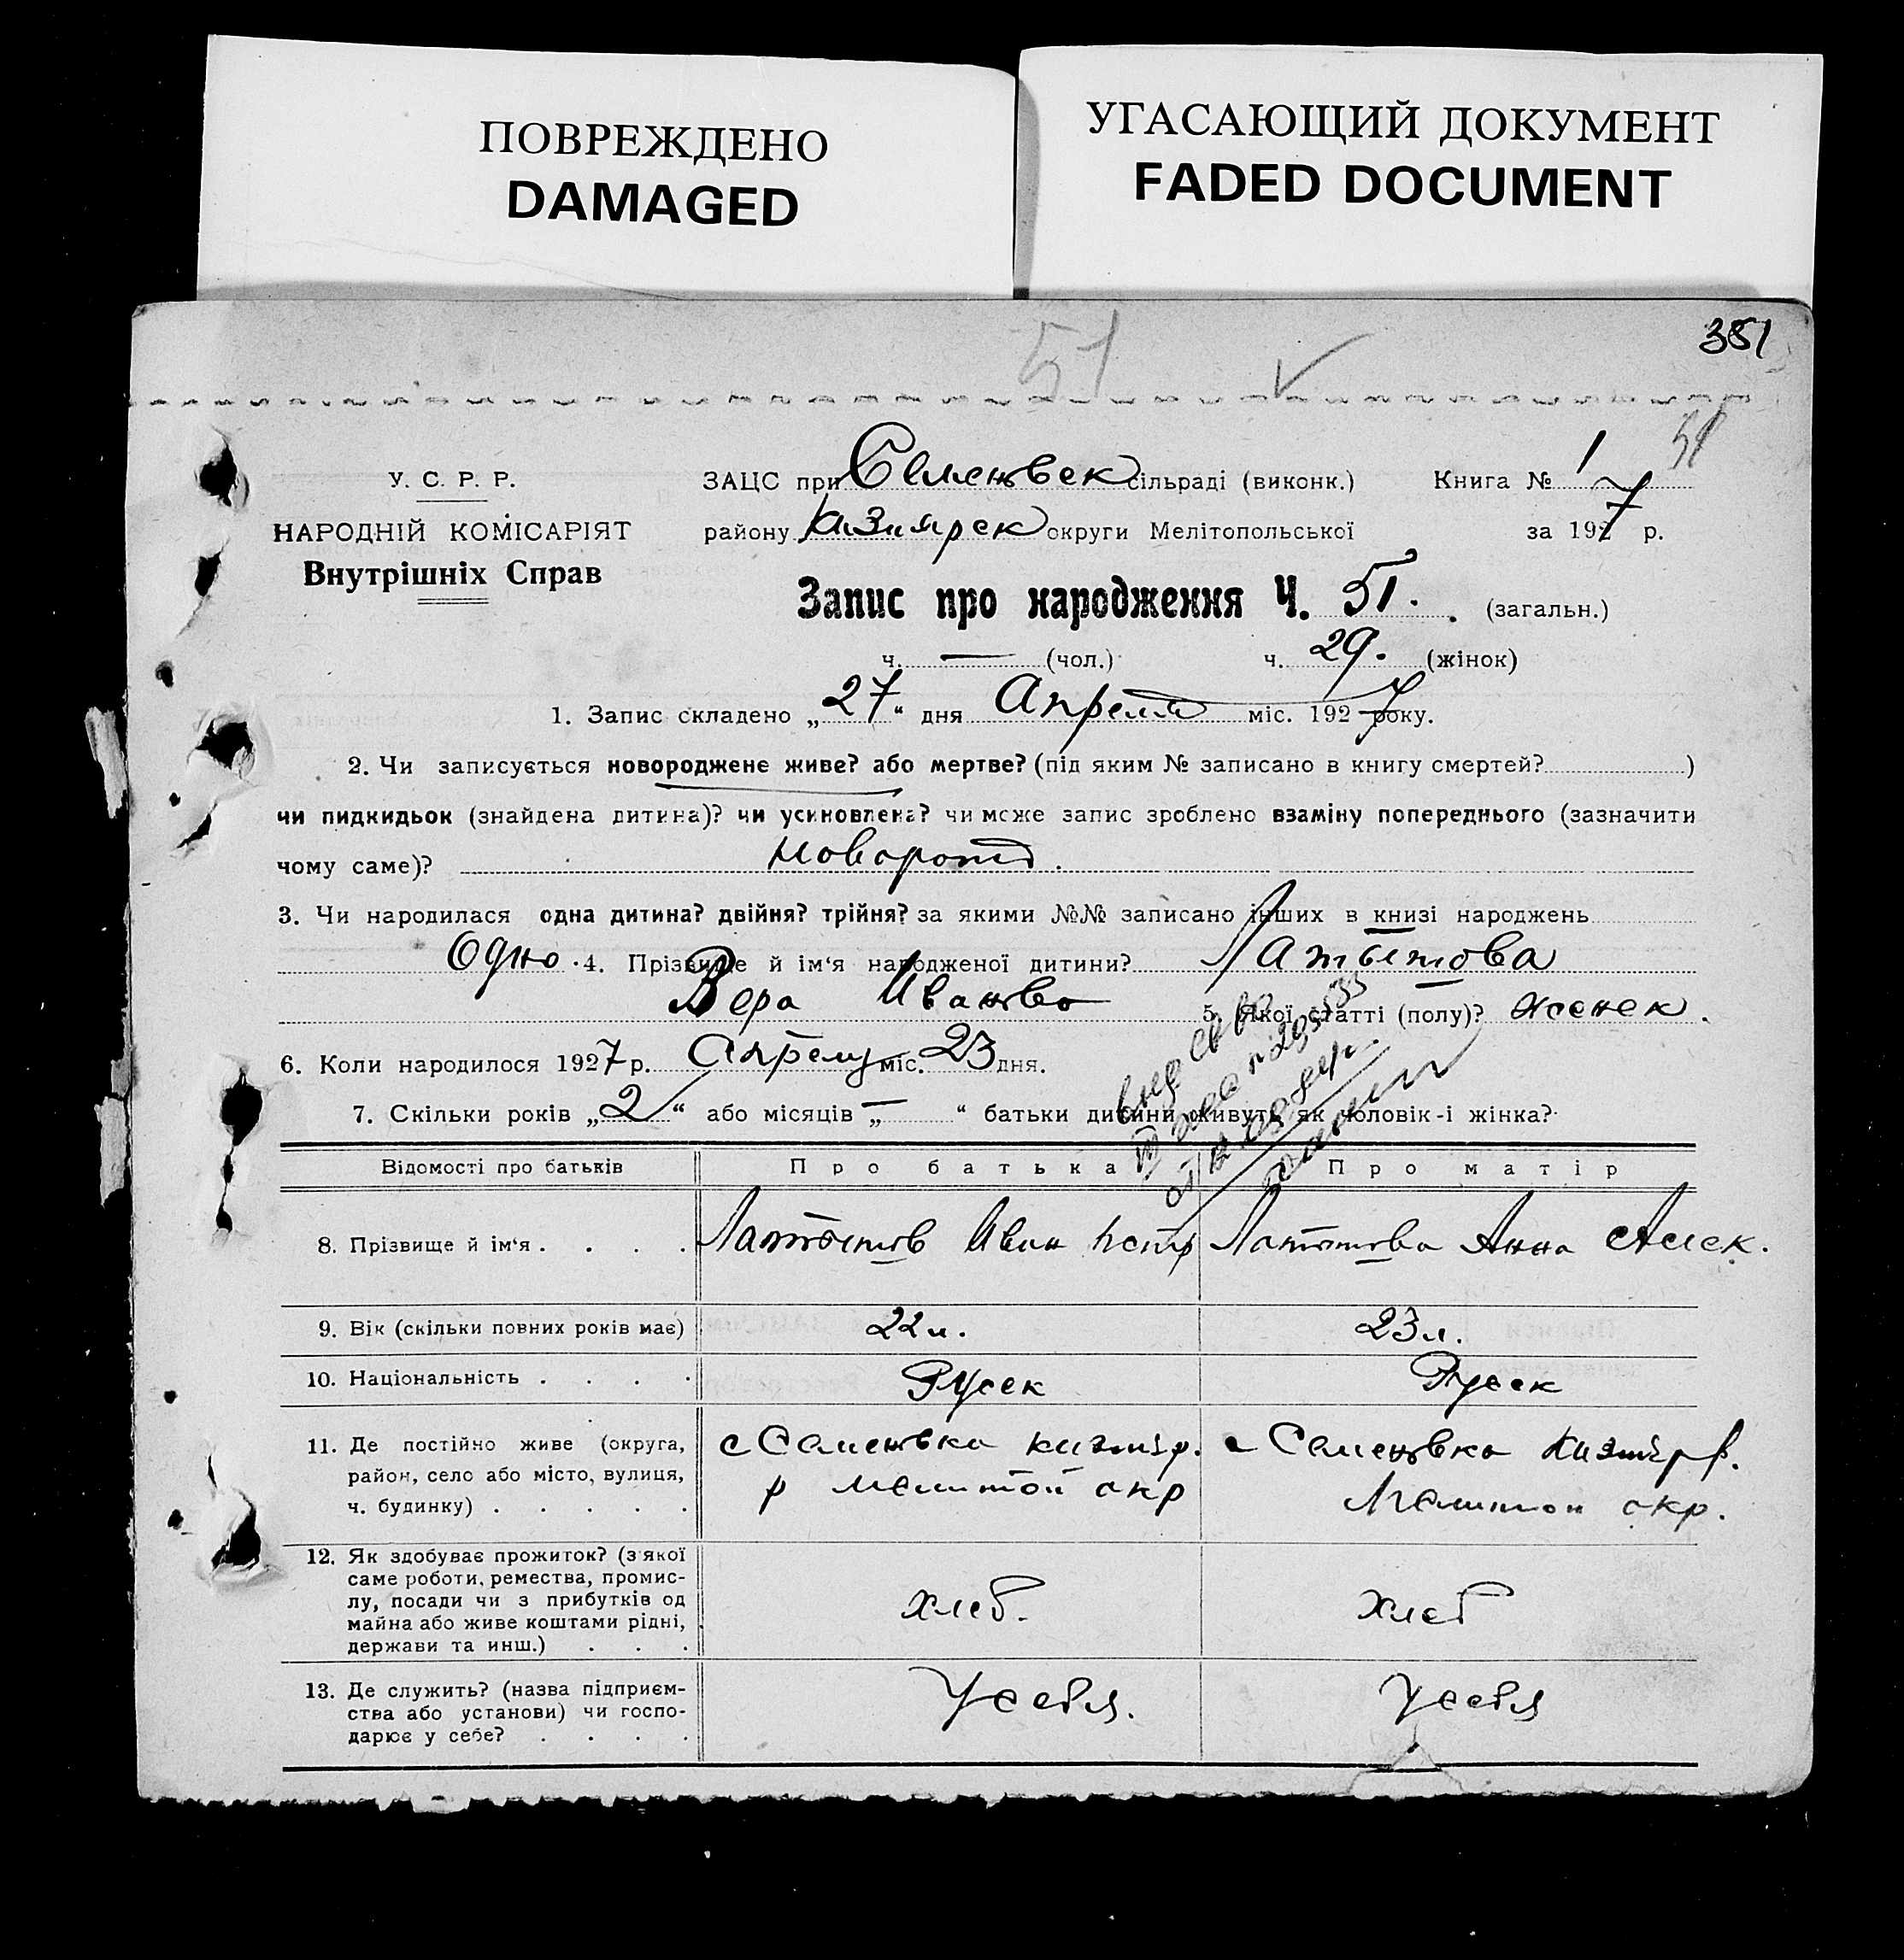 ПОВРЕЖДЕНО
DAMAGED
УГАСАЮЩИЙ ДОКУМЕНТ
FADED DOCUMENT
351
51
51
У. С. Р. Р.
НАРОДНІЙ КОМІСАРІЯТ
Внутрішніх Справ
ЗАЦС при Семеновск сільраді (виконк.) Книга № 1
району Кизиярск округи Мелітопольської за 1927 р.
Запис про народження Ч. 51. (загальн.)
ч. — (чол.) ч. 29. (жінок)
1. Запис складено „27“ дня Апреля міс. 1927 року.
2. Чи записується новороджене живе? або мертве? (під яким № записано в книгу смертей? )
чи пидкидьок (знайдена дитина)? чи усиновлена? чи може запис зроблено взаміну попереднього (зазначити
чому саме)? новорожд.
3. Чи народилася одна дитина? двійня? трійня? за якими №№ записано інших в книзі народжень
Одно. 4. Прізвище й ім'я народженої дитини? Латышова
Вера Иванвна 5. Якої статті (полу)? женск.
6. Коли народилося 1927 р. Апреля міс. 23 дня.
7. Скільки років „2“ або місяців „—“ батьки дитини живуть як чоловік-і жінка?
Відомості про батьків Про батька Про матір
8. Прізвище й ім'я . . . . Латышов Иван Петр Латышова Анна Алек.
9. Вік (скільки повних років має) 22 л. 23 л.
10. Національність . . . . Русск Русск
11. Де постійно живе (округа, район, село або місто, вулиця, ч. будинку) . . . . . с Семеновка кизияр. р мелитоп окр с Семеновка Кизияр р. Мелитоп окр.
12. Як здобуває прожиток? (з якої саме роботи, ремества, промислу, посади чи з прибутків од майна або живе коштами рідні, держави та инш.) . . . хлеб. хлеб
13. Де служить? (назва підприємства або установи) чи господарює у себе? . . . . У себя. У себя